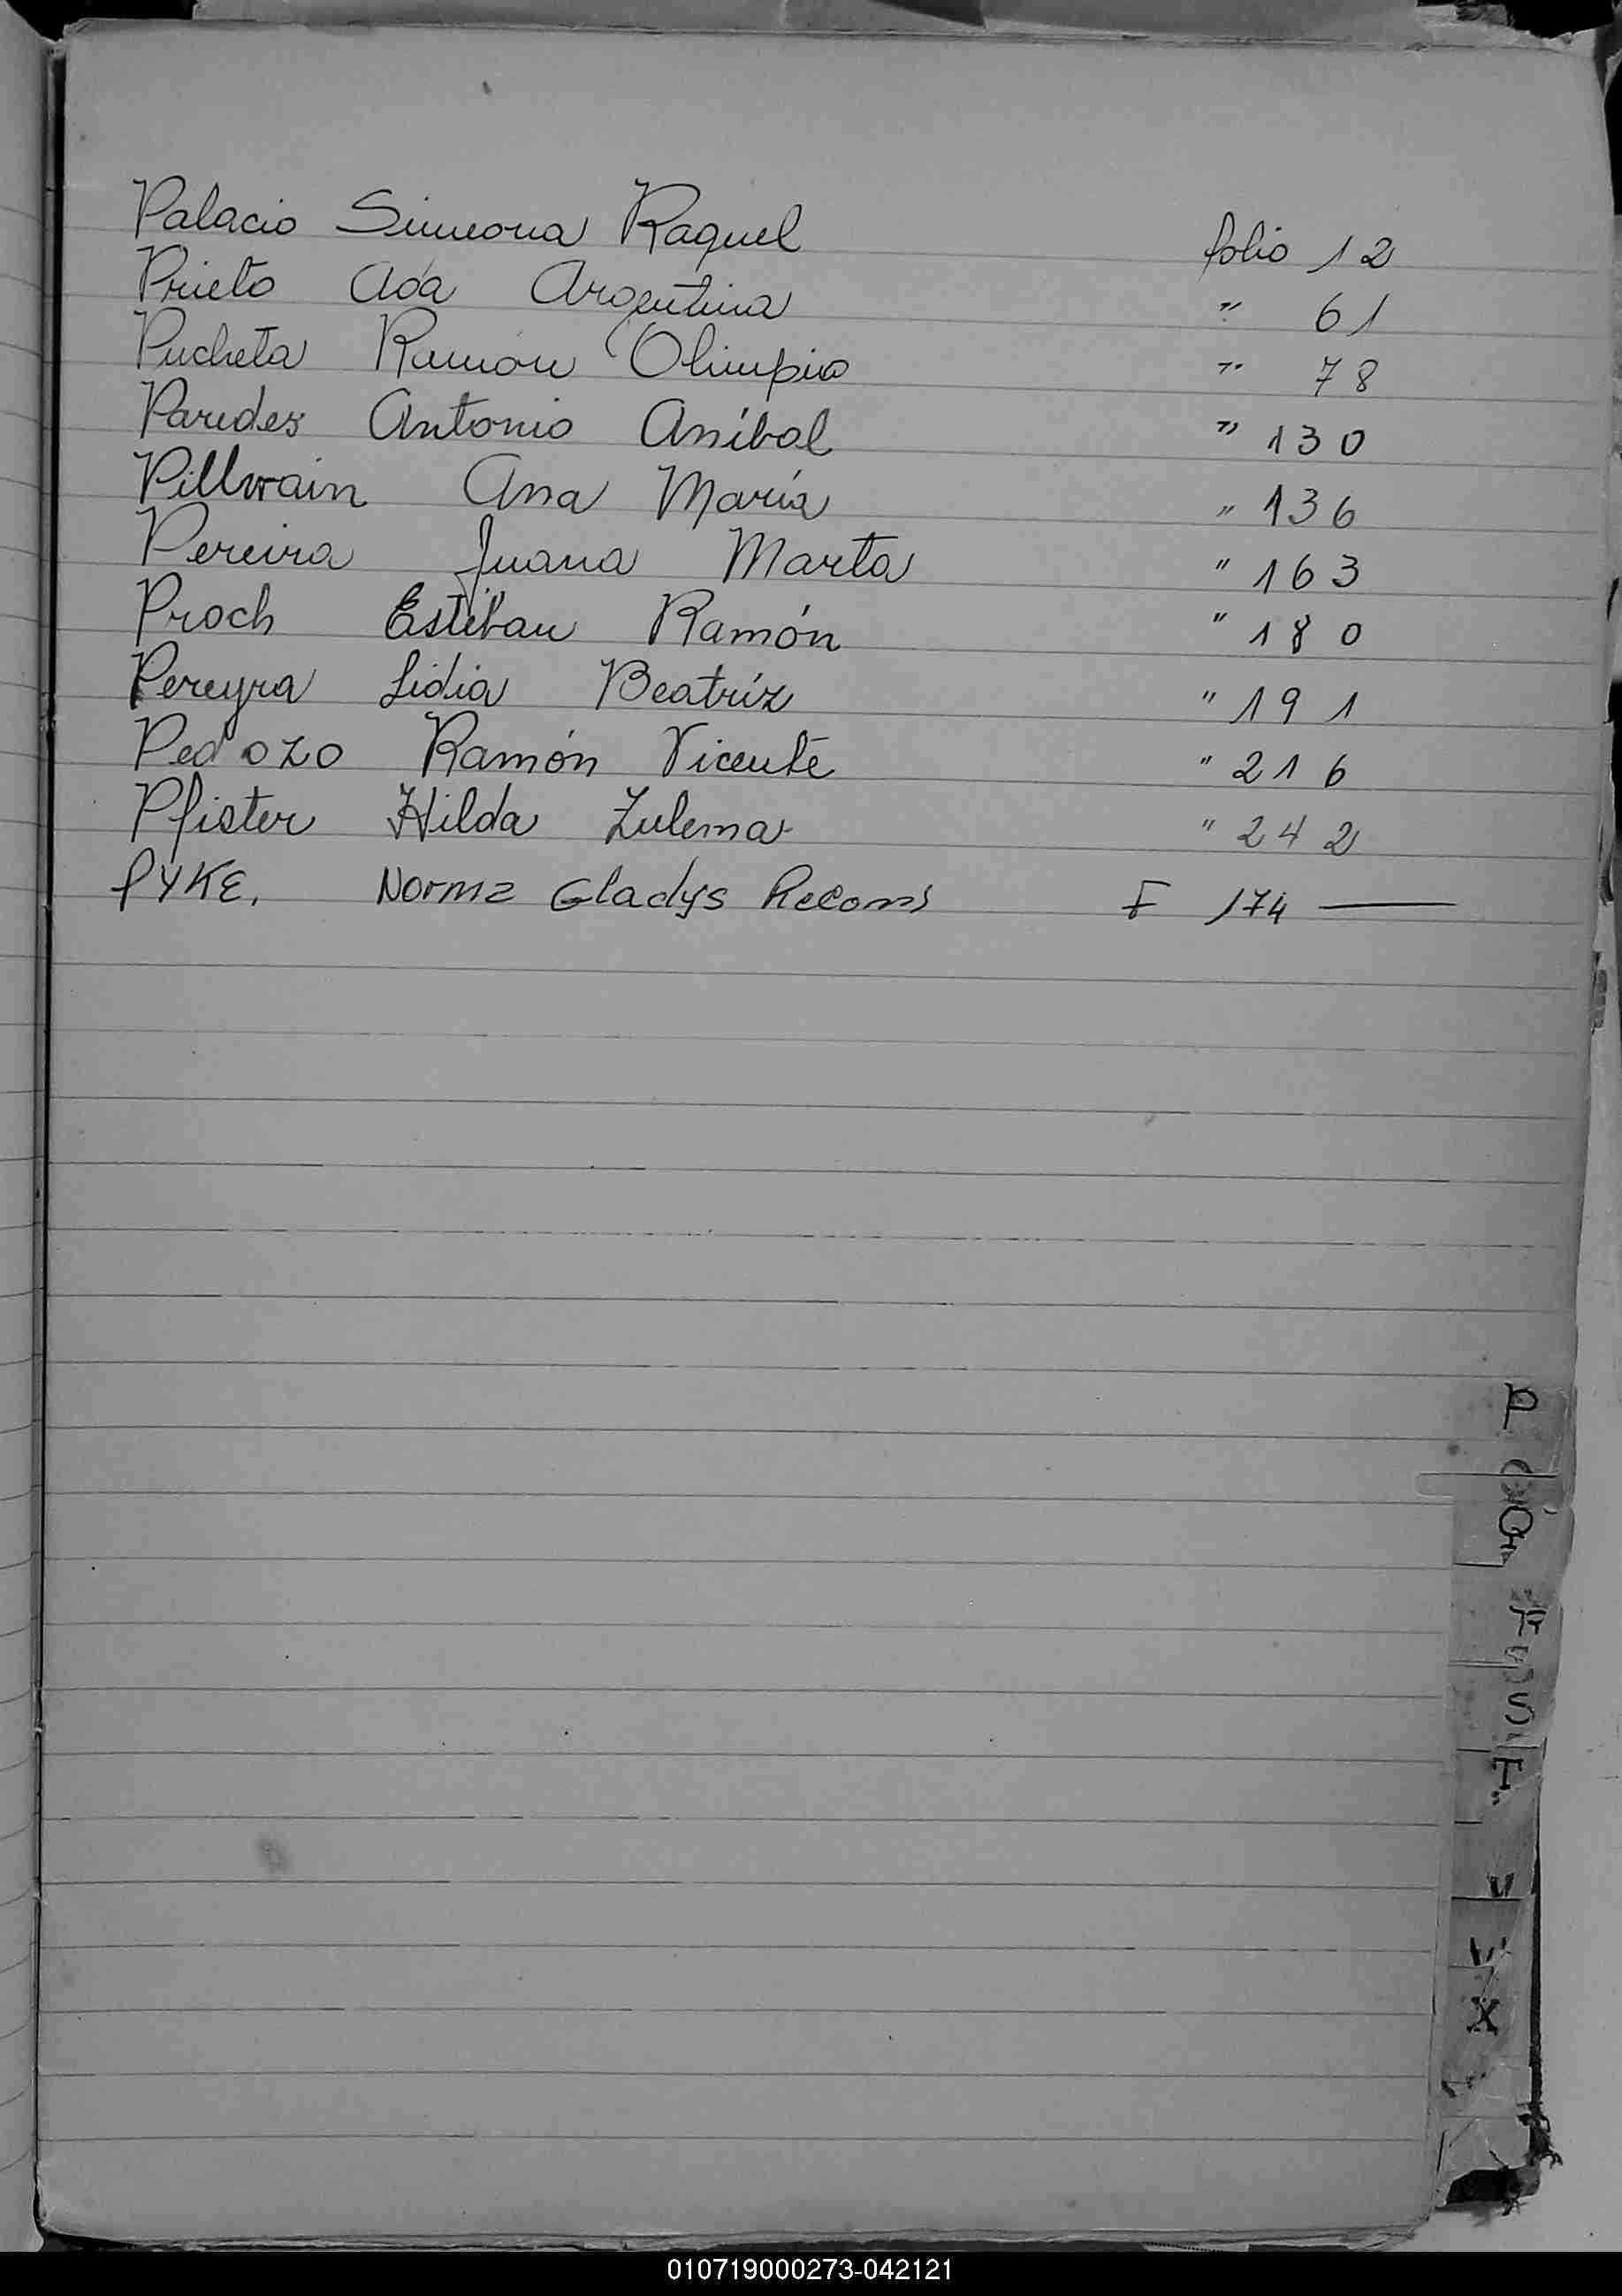 Palacio Simeona Raquel folio 12
Prieto Ada Argentina " 61
Pucheta Ramón Olimpio " 78
Paredes Antonio Aníbal " 130
Pillwain Ana María " 136
Pereira Juana Marta " 163
Proch Esteban Ramón " 180
Pereyra Lidia Beatríz " 191
Pedozo Ramón Vicente " 216
Pfister Hilda Zulema " 242
PYKE. Norma Gladys F 174 —
P
Q
S
T
V
X
010719000273-042121